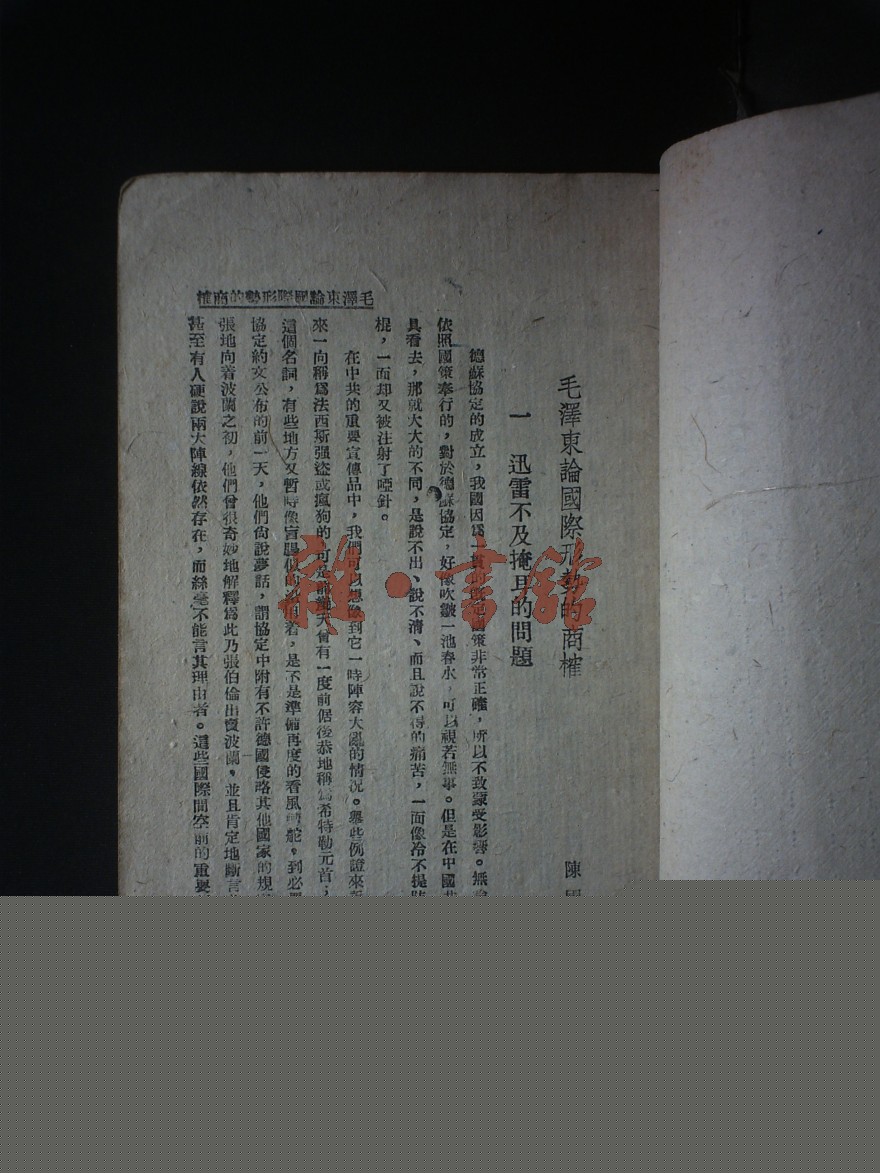 毛澤東論國際形勢的商榷
毛澤東論國際形勢的商榷
陳
一　迅雷不及掩耳的問題
德蘇協定的成立，我國因爲一貫的既定國策非常正確，所以不致蒙受影響。無
依照國策奉行的，對於德蘇協定，好像吹皺一池春水，可以視若無事。但是在中國共
具看去，那就大大的不同，是說不出、說不清、而且說不得的痛苦，一面像冷不提防
棍，一面却又被注射了啞針。
在中共的重要宣傳品中，我們可以想像到它一時陣容大亂的情況。舉些例證來
來一向稱爲法西斯强盜或瘋狗的，可是前幾天曾有一度前倨後恭地稱爲希特勒元首；
這個名詞，有些地方又暫時像盲腸似的 着，是不是準備再度的看風轉舵，到必
協定約文公布的前一天，他們尙說夢話，謂協定中附有不許德國侵略其他國家的規
張地向着波蘭之初，他們曾很奇妙地解釋爲此乃張伯倫出賣波蘭，並且肯定地斷言
甚至有人硬說兩大陣線依然存在，而絲毫不能言其理由者。這些國際間空前的重要
雜·書館